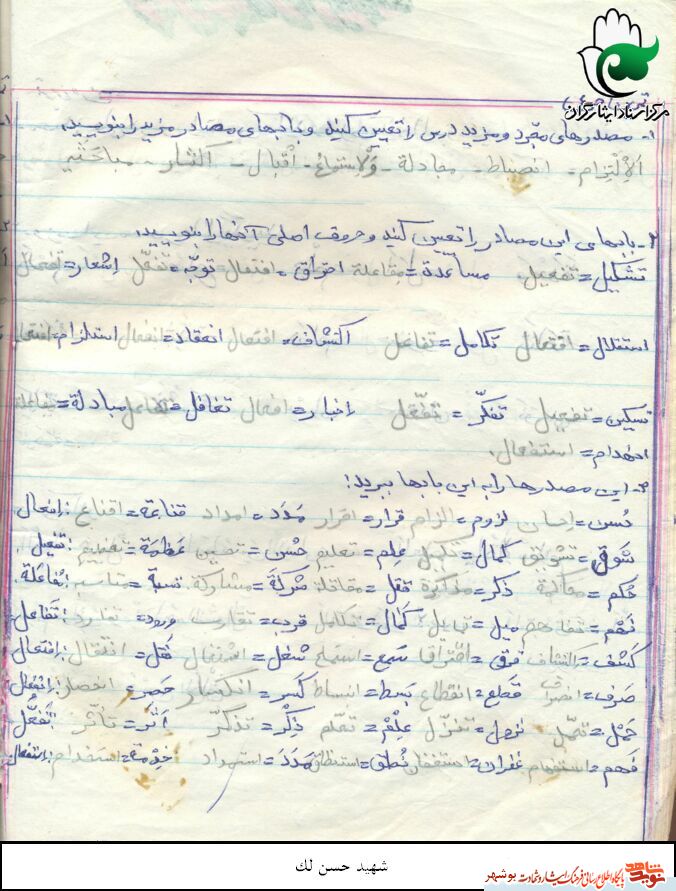 مرکز اسناد ایثارگران
۱- مصدرهای مجرد و مزید درس را تعیین کنید و بابهای مصادر مزید را بنویسید.
اَلاِلْتِزام - انضباط - مجادلة - وَالاِستِماع - اقبال - اکثار - مباحَثه
۲- بابهای این مصادر را تعیین کنید و حروف اصلی آنها را بنویسید.
تشکیل = تفعیل مساعدة = مفاعلة احتراق = افتعال توجّه = تفعّل اشعار =
استقلال = تکامل = تفاعل اکتشاف = افتعال انعقاد = انفعال استلزام =
تسکین = تفعیل تفکّر = تفّعل اخبار = افعال تغافل = تفاعل مبادلة =
انهدام = استفعال.
۳- این مصدرها را به این بابها ببرید:
حُسن = احسان لزوم = الزام قرار = اقرار مَدَد = امداد قناعة = اقناع : اِفعال
شَوق = تشویق کمال = تکمیل عِلم = تعلیم حُسن = تحسین عَظمَة = تعظیم : تفعیل
حُکم = محاکمة ذکر = مذاکرة قتل = مقاتلة شرکَة = مشارکة نسبَة = مناسبه : مُفاعَلة
فَهْم = تفاهم میل = تمایل کَمال = تکامل قرب = تقارب ورود = توارد : تَفاعل
کَشف = اکتشاف فرق = افتراق سَمع = استماع شغل = اشتغال نَقل = انتقال : اِفتعال
صَرف = انصراف قَطع = انقطاع بَسط = انبساط کَسر = انکسار حَصر = انحصار : اِنفعال
حَمْل = تحمّل نزول = تنزّل عِلْم = تعلّم ذکْر = تذکّر اَثَر = تأثّر : تَفَعُّل
فَهم = استفهام غفران = استغفار نُطق = استنطاق مَدَد = استمداد خِدْمة = استخدام : استفعال
شهید حسن لك
نوید شاهد
پایگاه اطلاع رسانی فرهنگ ایثار و شهادت بوشهر